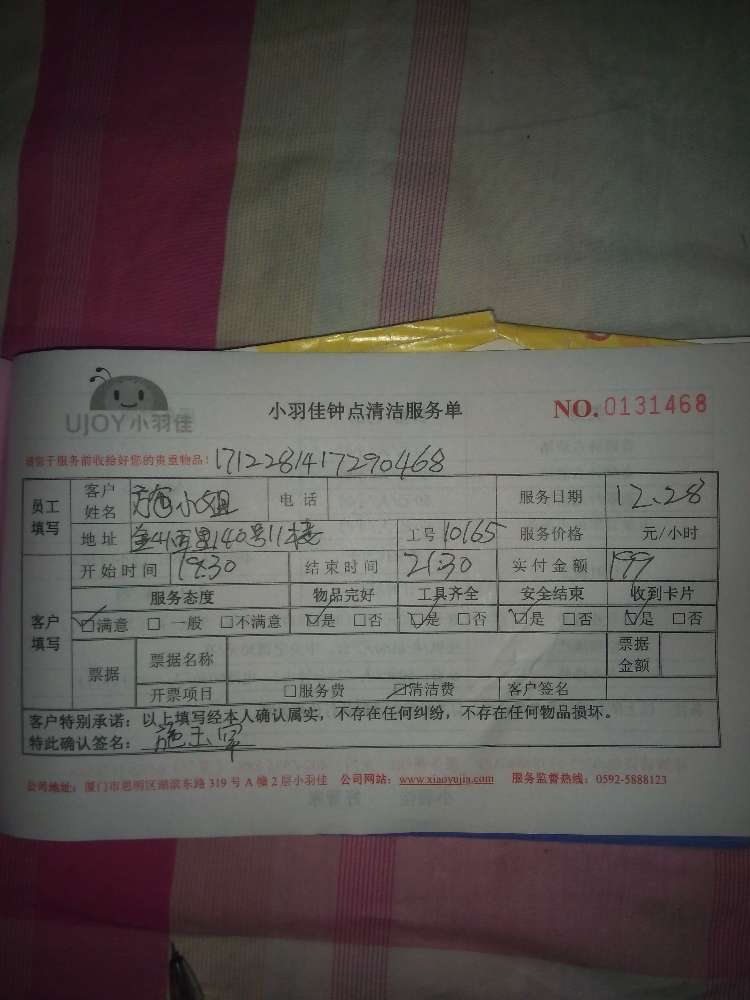 UJOY小羽佳
小羽佳钟点清洁服务单
NO.0131468
请您于服务前收拾好您的贵重物品:
1712281417290468
员工填写 客户姓名 小姐 电话 服务日期 12.28
地址 里140号11楼 工号 10165 服务价格 元/小时
客户填写 开始时间 19:30 结束时间 21:30 实付金额 199
服务态度 物品完好 工具齐全 安全结束 收到卡片
☑满意 □ 一般 □不满意 ☑是 □否 ☑是 □否 ☑是 □否 ☑是 □否
票据 票据名称 票据金额
开票项目 □服务费 ☑清洁费 客户签名
客户特别承诺：以上填写经本人确认属实，不存在任何纠纷，不存在任何物品损坏。
特此确认签名：
公司地址：厦门市思明区湖滨东路 319 号 A 幢 2 层小羽佳 公司网站：www.xiaoyujia.com 服务监督热线：0592-5888123